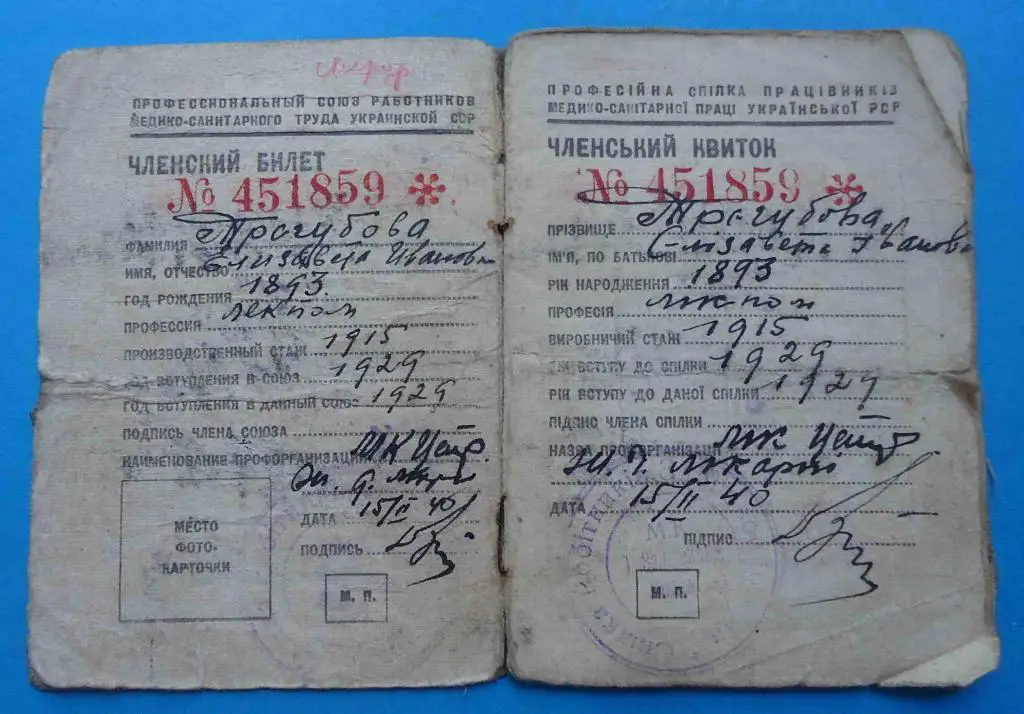 ПРОФЕССИОНАЛЬНЫЙ СОЮЗ РАБОТНИКОВ
МЕДИКО-САНИТАРНОГО ТРУДА УКРАИНСКОЙ ССР
ЧЛЕНСКИЙ БИЛЕТ
№ 451859 *
ФАМИЛИЯ Трогубова
ИМЯ, ОТЧЕСТВО Елизавета Ивановна
ГОД РОЖДЕНИЯ 1893
ПРОФЕССИЯ лекпом
ПРОИЗВОДСТВЕННЫЙ СТАЖ 1915
ГОД ВСТУПЛЕНИЯ В СОЮЗ 1929
ГОД ВСТУПЛЕНИЯ В ДАННЫЙ СОЮЗ 1929
ПОДПИСЬ ЧЛЕНА СОЮЗА
НАИМЕНОВАНИЕ ПРОФОРГАНИЗАЦИИ МК
МЕСТО
ФОТО-
КАРТОЧКИ
ДАТА 15/II 40
ПОДПИСЬ
М. П.
ПРОФЕСІЙНА СПІЛКА ПРАЦІВНИКІВ
МЕДИКО-САНІТАРНОЇ ПРАЦІ УКРАЇНСЬКОЇ РСР
ЧЛЕНСЬКИЙ КВИТОК
№ 451859 *
ПРІЗВИЩЕ Трогубова
ІМ'Я, ПО БАТЬКОВІ Єлізавета Івановна
РІК НАРОДЖЕННЯ 1893
ПРОФЕСІЯ лікпом
ВИРОБНИЧИЙ СТАЖ 1915
РІК ВСТУПУ ДО СПІЛКИ 1929
РІК ВСТУПУ ДО ДАНОЇ СПІЛКИ 1929
ПІДПИС ЧЛЕНА СПІЛКИ
НАЗВА ПРОФОРГАНІЗАЦІЇ МК
ДАТА 15/II 40
ПІДПИС
М. П.